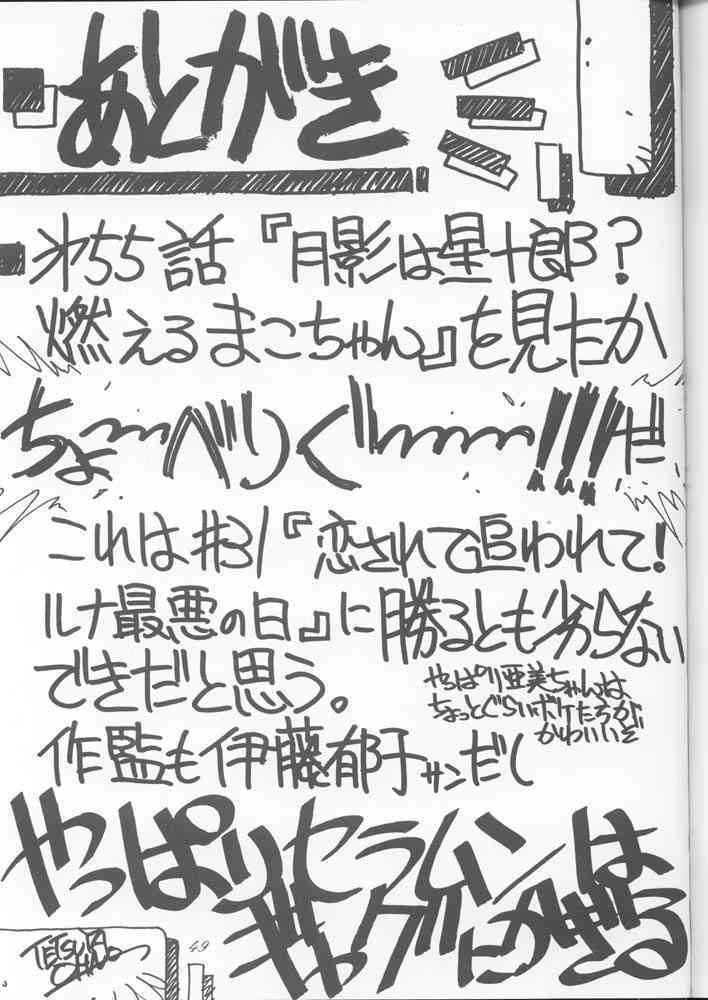 あとがき
才55話『月影は星十郎?
燃えるまこちゃん』を見たか
ちょーーべりぐーーー!!!だ
これは#31『恋されて追われて!
ルナ最悪の日』に勝るとも劣らない
できだと思う。
やっぱり亜美ちゃんは
ちょっとぐらいボケたろが
かわいいぞ
作監も伊藤郁子サンだし
やっぱりセラムンは
ギャグにかぎる
49